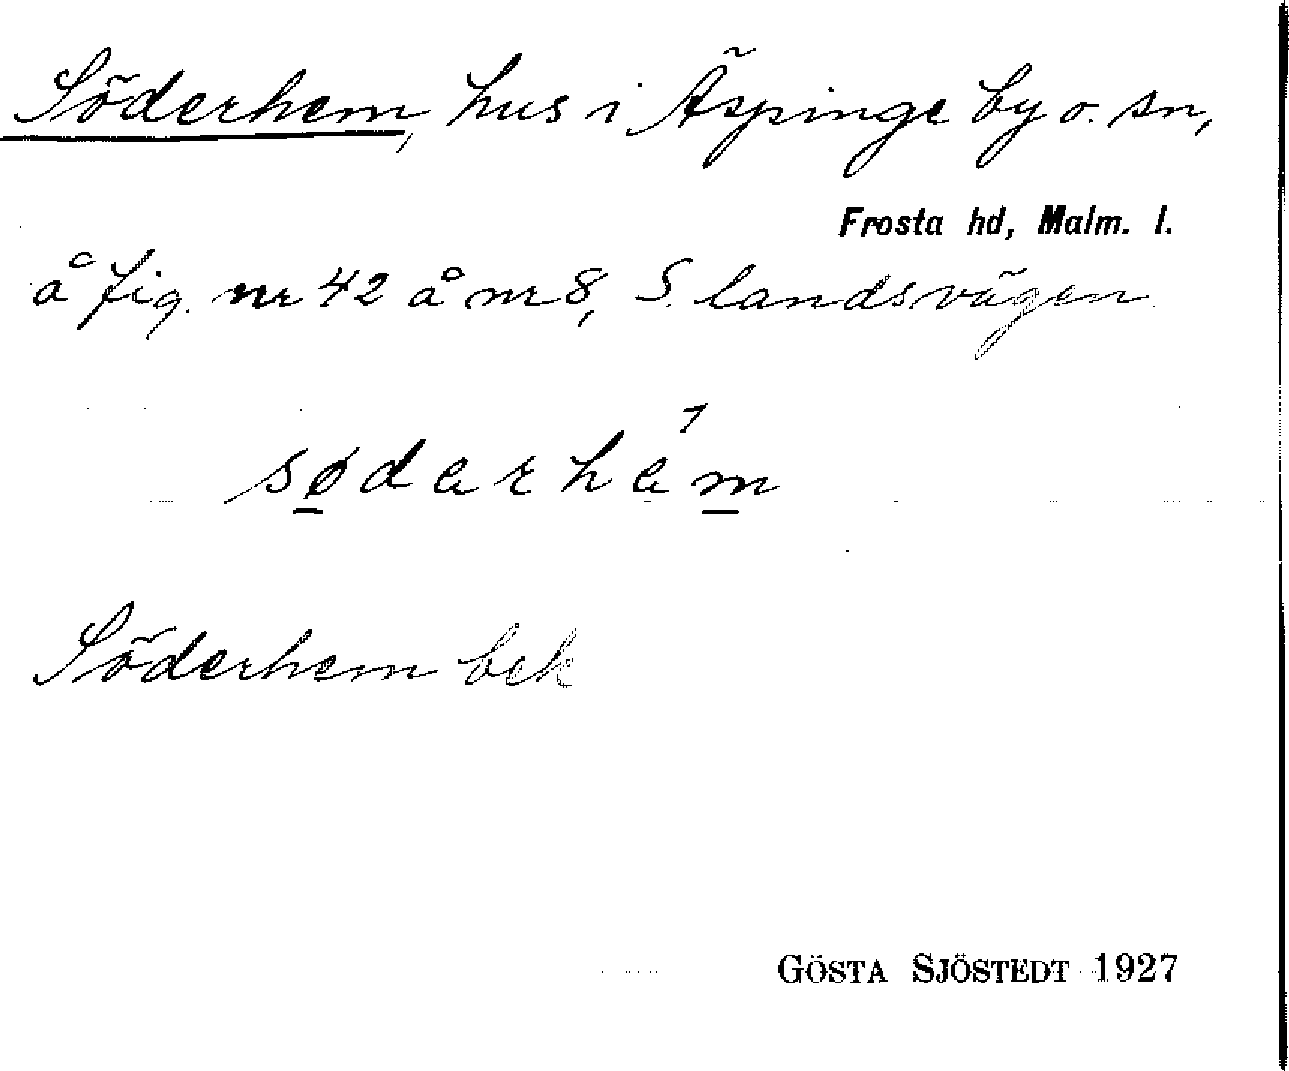 Söderhem, hus i Äspinge by o. sn,
Frosta hd, Malm. l.
å fig. nr 42 å nr 8, S. landsvägen.
sø̱darhám̱
Söderhem bek
GÖSTA SJÖSTEDT 1927